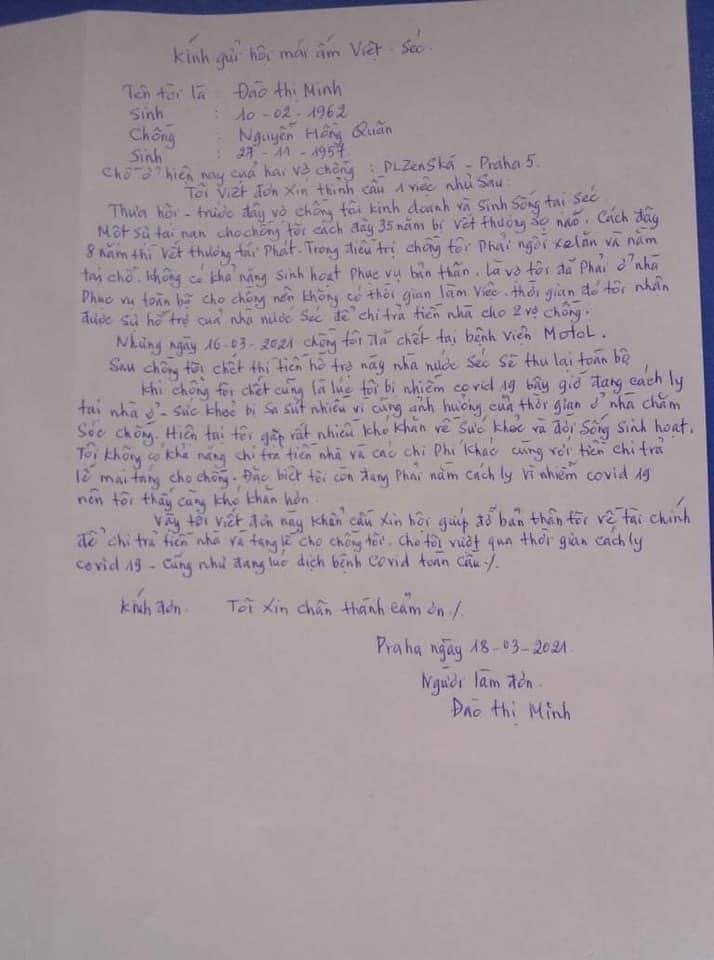 Kính gửi hội mái ấm Việt - Séc.
Tên tôi là : Đào thị Minh
Sinh : 10-02-1962
Chồng : Nguyễn Hồng Quân
Sinh : 27-11-1957
Chỗ ở hiện nay của hai vợ chồng : PLZenSká - Praha 5.
Tôi viết đơn xin thỉnh cầu 1 việc như sau:
Thưa hội - trước đây vợ chồng tôi kinh doanh và sinh sống tại Séc
Một sự tai nạn cho chồng tôi cách đây 35 năm bị vết thương sọ não. Cách đây
8 năm thì vết thương tái phát. Trong điều trị chồng tôi phải ngồi xe lăn và nằm
tại chỗ. Không có khả năng sinh hoạt phục vụ bản thân. Là vợ tôi đã phải ở nhà
phục vụ toàn bộ cho chồng nên không có thời gian làm việc. thời gian đó tôi nhận
được sự hỗ trợ của nhà nước Séc để chi trả tiền nhà cho 2 vợ chồng.
Nhưng ngày 16-03-2021 chồng tôi đã chết tại bệnh viện MotoL.
Sau chồng tôi chết thì tiền hỗ trợ này nhà nước Séc sẽ thu lại toàn bộ
Khi chồng tôi chết cũng là lúc tôi bị nhiễm covid 19 bây giờ đang cách ly
tại nhà ở - sức khoẻ bị sa sút nhiều vì cũng ảnh hưởng của thời gian ở nhà chăm
sóc chồng. Hiện tại tôi gặp rất nhiều khó khăn về sức khoẻ và đời sống sinh hoạt.
Tôi không có khả năng chi trả tiền nhà và các chi phí khác cùng với tiền chi trả
lễ mai táng cho chồng. Đặc biệt tôi còn đang phải nằm cách ly vì nhiễm covid 19
nên tôi thấy càng khó khăn hơn.
Vậy tôi viết đơn này khẩn cầu xin hội giúp đỡ bản thân tôi về tài chính
để chi trả tiền nhà và tang lễ cho chồng tôi. Cho tôi vượt qua thời gian cách ly
covid 19 - Cũng như đang lúc dịch bệnh Covid toàn cầu ./.
Kính đơn. Tôi xin chân thành cảm ơn ./.
Praha ngày 18-03-2021.
Người làm đơn.
Đào thị Minh